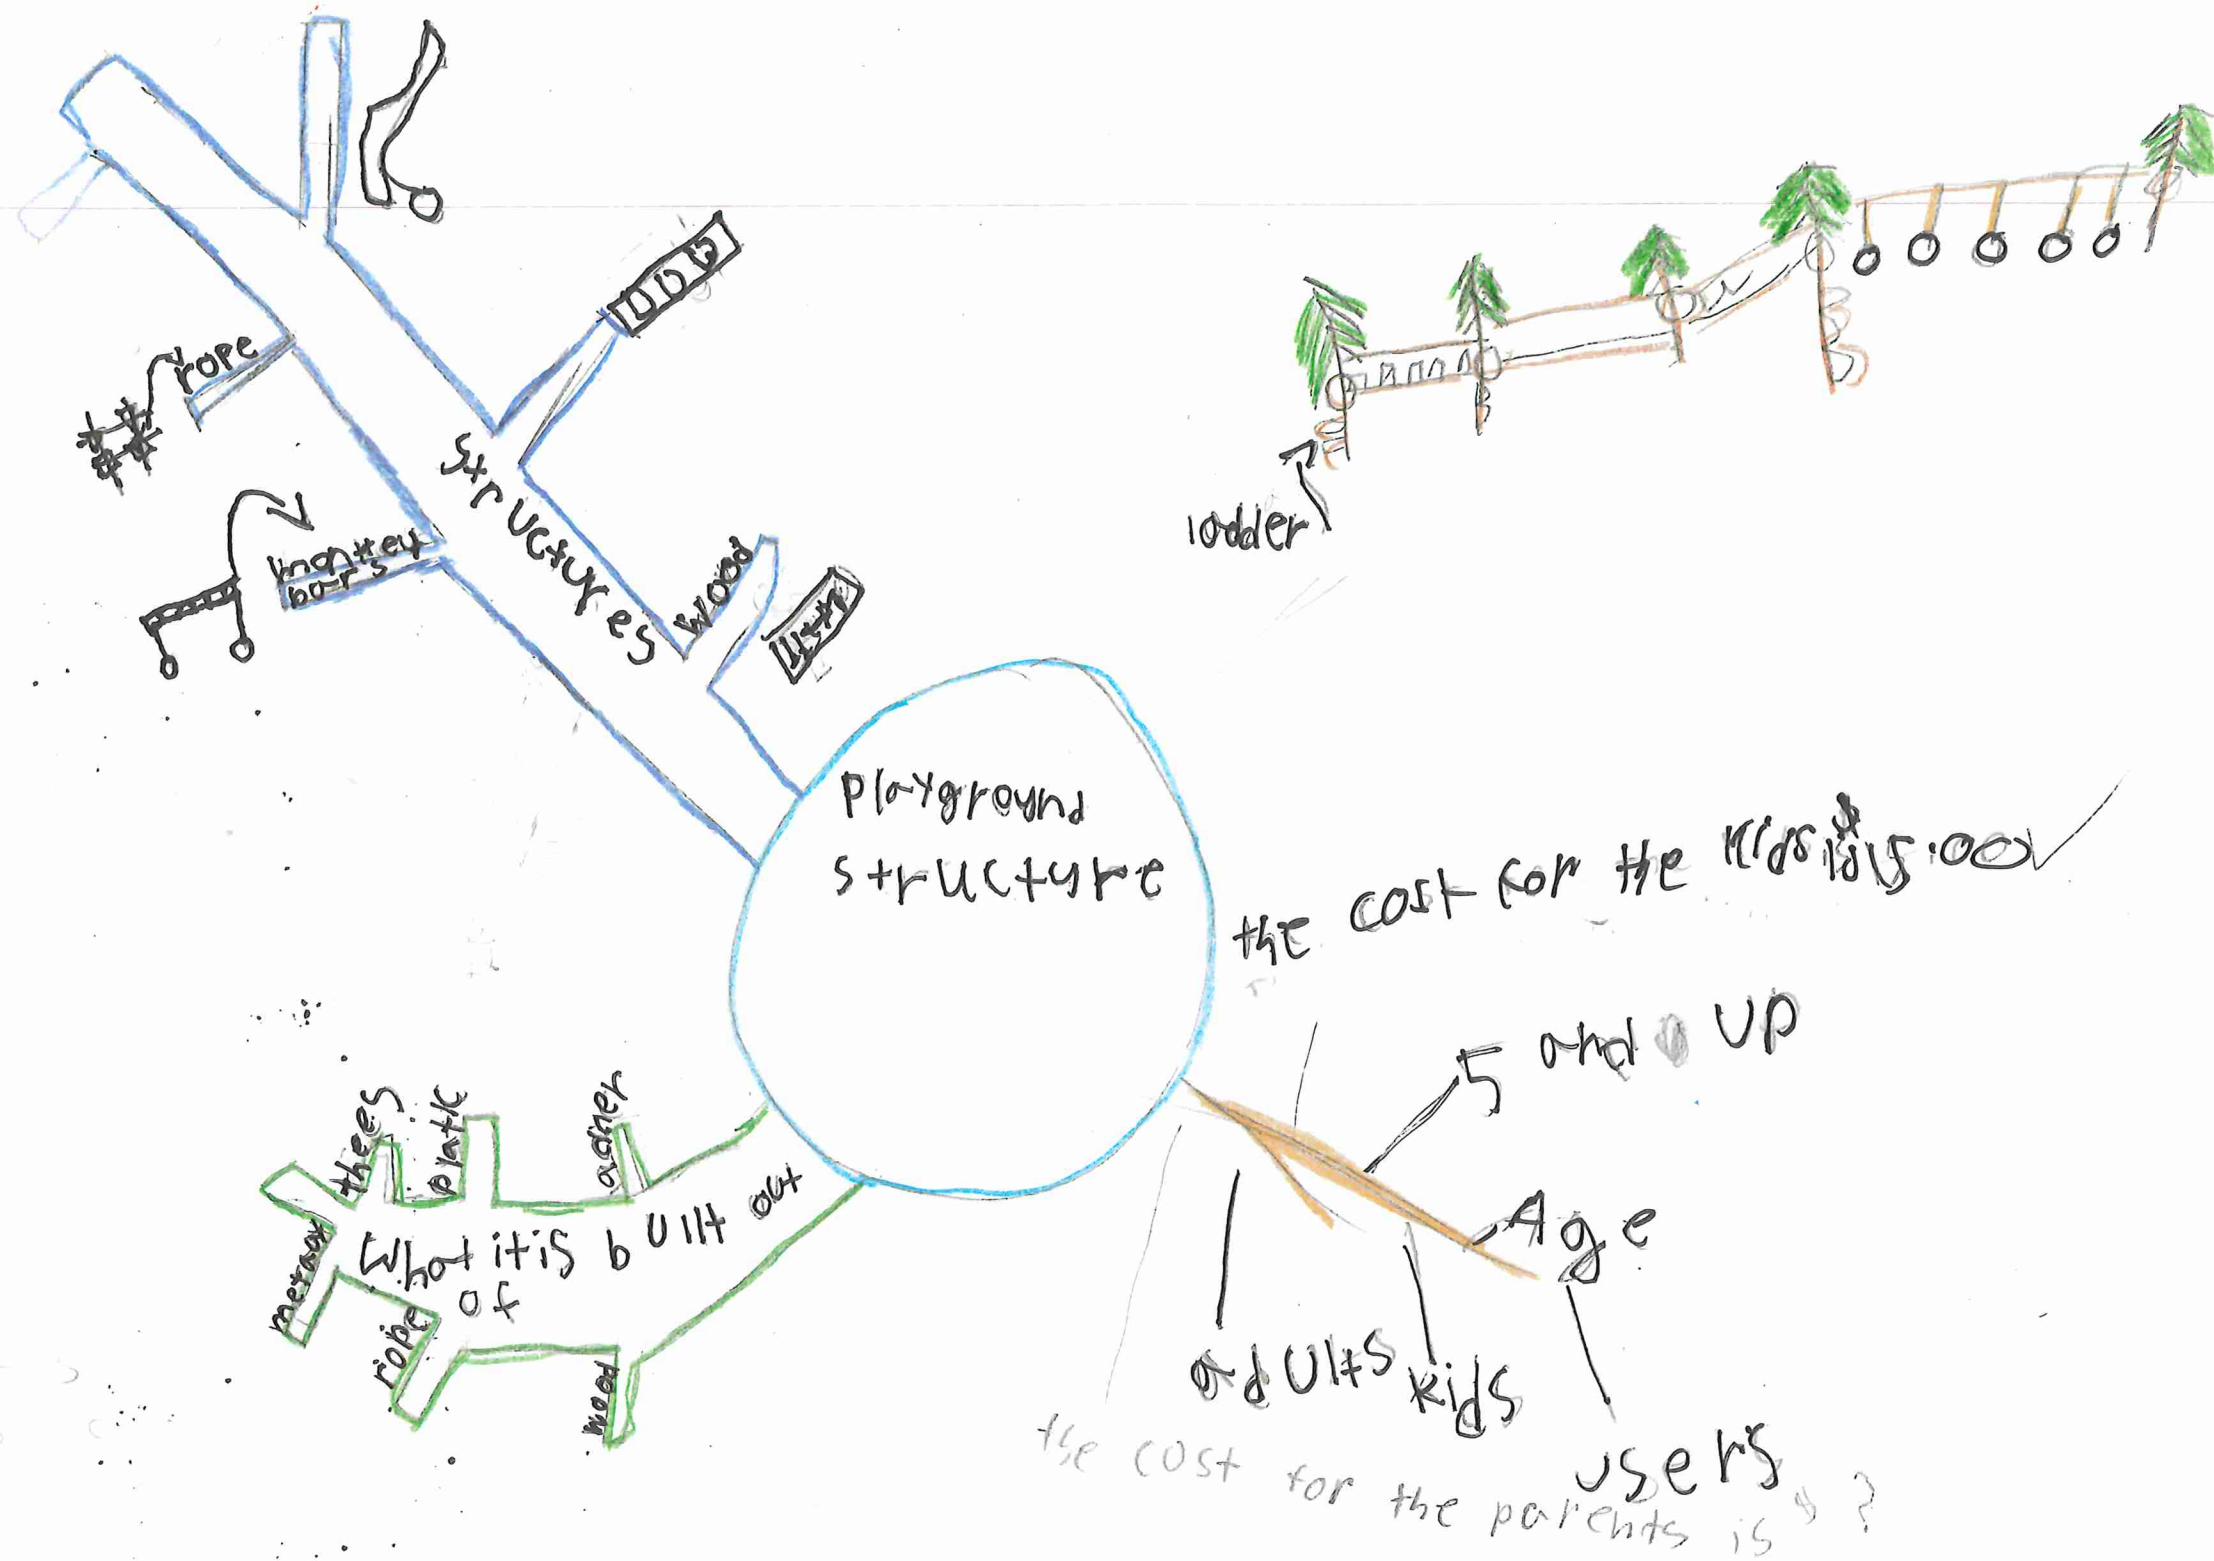 rope
monkey
bars
structures
wood
ladder
playground
structure
the cost for the kids is $15.00
5 and up
Age
adults
kids
users
the cost for the parents is $ ?
thees
platic
What it is built out
of
rope
wood